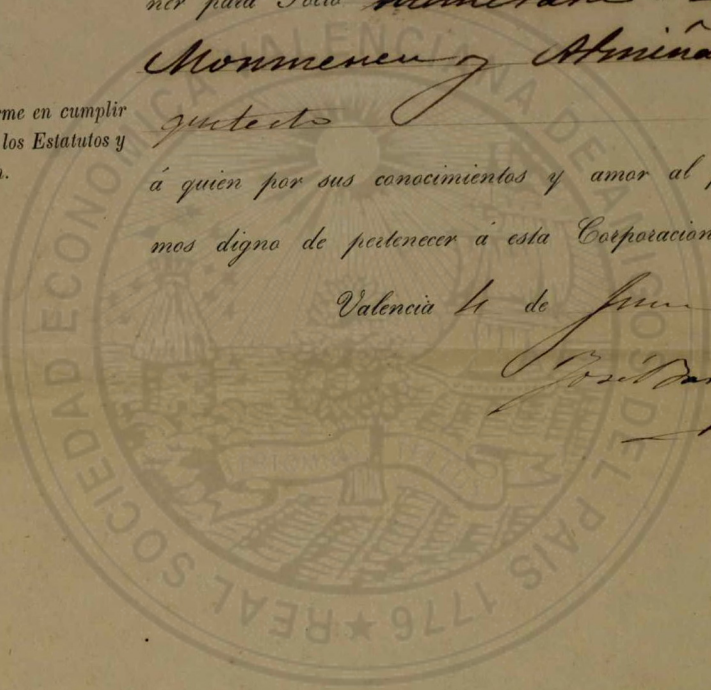 ner para Socio
Monmeneu y Almiña
quitecto
rme en cumplir
los Estatutos y
n.
á quien por sus conocimientos y amor al p
mos digno de pertenecer á esta Corporacion
Valencia 4 de
José
REAL SOCIEDAD ECONOMICA VALENCIANA DE AMIGOS DEL PAIS 1776